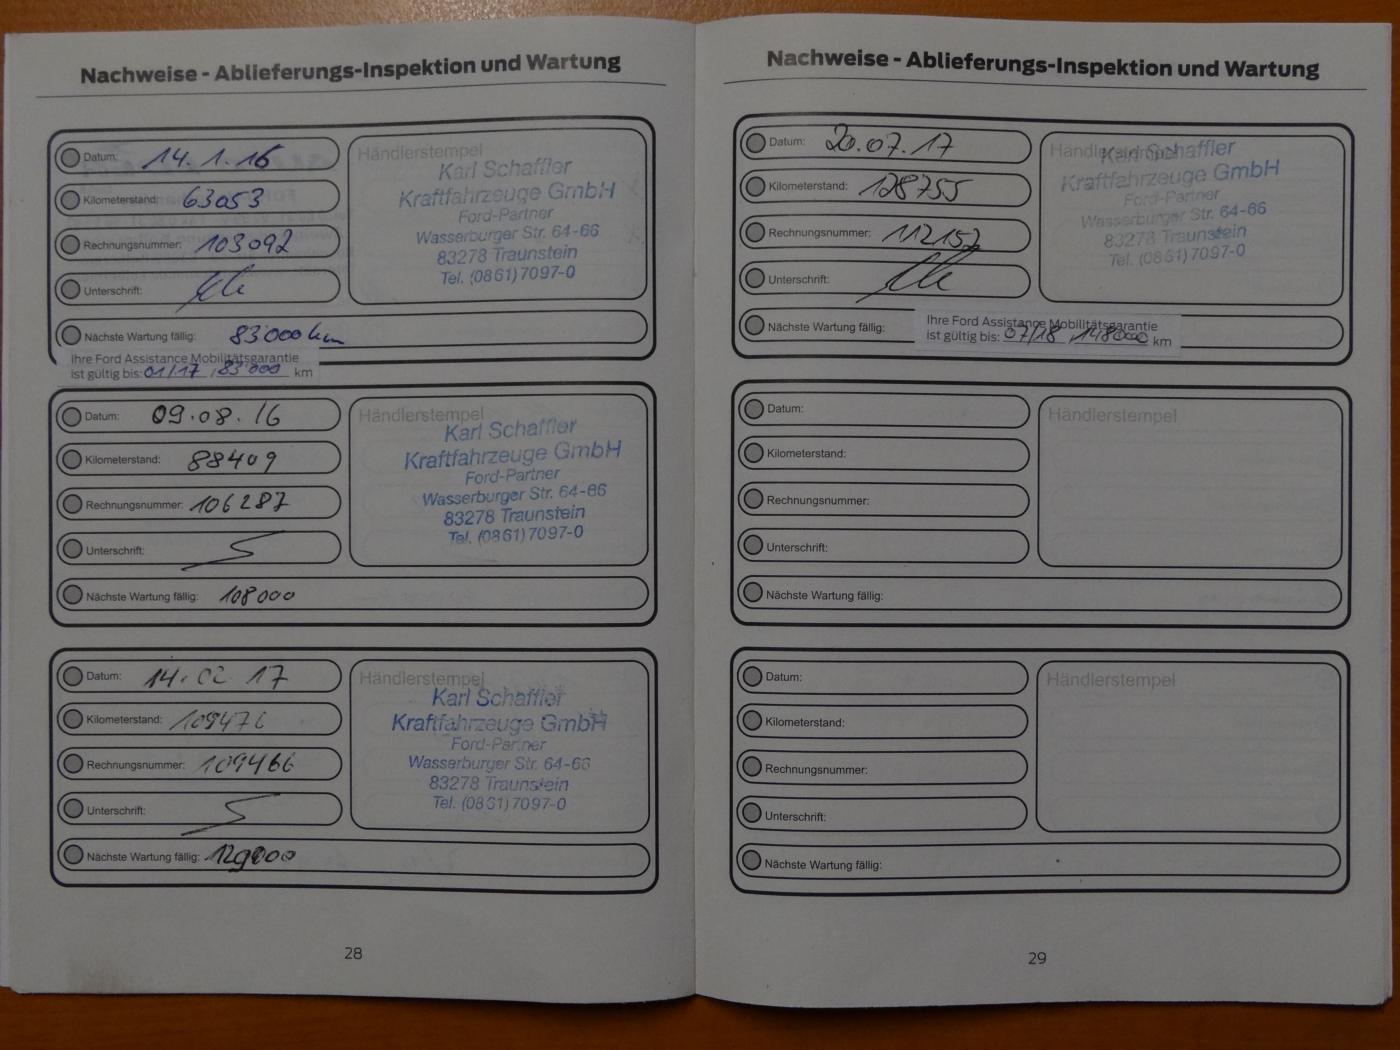 Nachweise - Ablieferungs-Inspektion und Wartung
Datum: 14.1.16
Kilometerstand: 63053
Rechnungsnummer: 103092
Unterschrift:
Händlerstempel
Karl Schaffler
Kraftfahrzeuge GmbH
Ford-Partner
Wasserburger Str. 64-66
83278 Traunstein
Tel. (0861) 7097-0
Nächste Wartung fällig: 83'000 km
Ihre Ford Assistance Mobilitätsgarantie
ist gültig bis: 01/17, 83'000 km
Datum: 09.08.16
Kilometerstand: 88409
Rechnungsnummer: 106287
Unterschrift:
Händlerstempel
Karl Schaffler
Kraftfahrzeuge GmbH
Ford-Partner
Wasserburger Str. 64-66
83278 Traunstein
Tel. (0861) 7097-0
Nächste Wartung fällig: 108000
Datum: 14.02.17
Kilometerstand: 109476
Rechnungsnummer: 109466
Unterschrift:
Händlerstempel
Karl Schaffler
Kraftfahrzeuge GmbH
Ford-Partner
Wasserburger Str. 64-66
83278 Traunstein
Tel. (0861) 7097-0
Nächste Wartung fällig: 129000
28
Nachweise - Ablieferungs-Inspektion und Wartung
Datum: 20.07.17
Kilometerstand: 128755
Rechnungsnummer: 112152
Unterschrift:
Händlerstempel
Karl Schaffler
Kraftfahrzeuge GmbH
Ford-Partner
Wasserburger Str. 64-66
83278 Traunstein
Tel. (0861) 7097-0
Nächste Wartung fällig:
Ihre Ford Assistance Mobilitätsgarantie
ist gültig bis: 07/18, 148000 km
Datum:
Kilometerstand:
Rechnungsnummer:
Unterschrift:
Händlerstempel
Nächste Wartung fällig:
Datum:
Kilometerstand:
Rechnungsnummer:
Unterschrift:
Händlerstempel
Nächste Wartung fällig:
29